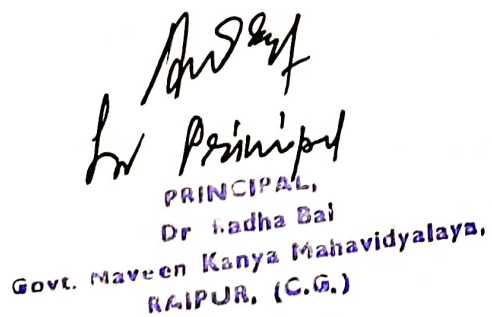 Principal
PRINCIPAL,
Dr Radha Bai
Govt. Naveen Kanya Mahavidyalaya,
RAIPUR, (C.G.)